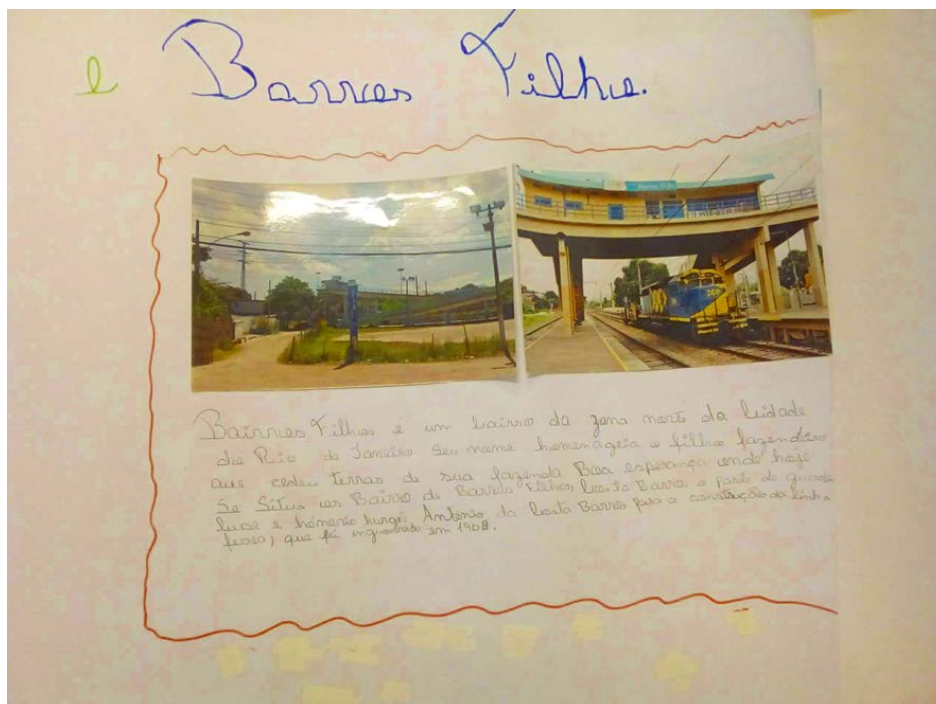 e Barros Filho.
Barros Filho
Bairros Filhos é um bairro da zona norte da Cidade
do Rio de Janeiro Seu nome homenageia o filho fazendeiro
que cedeu terras de sua fazenda Boa esperança onde hoje
Se Situa os Bairro de Barros Filhos, Costa Barros e parte de
e honorio Antônio da Costa Barros para a construção da linha
ferrea, que foi ingurado em 1908.